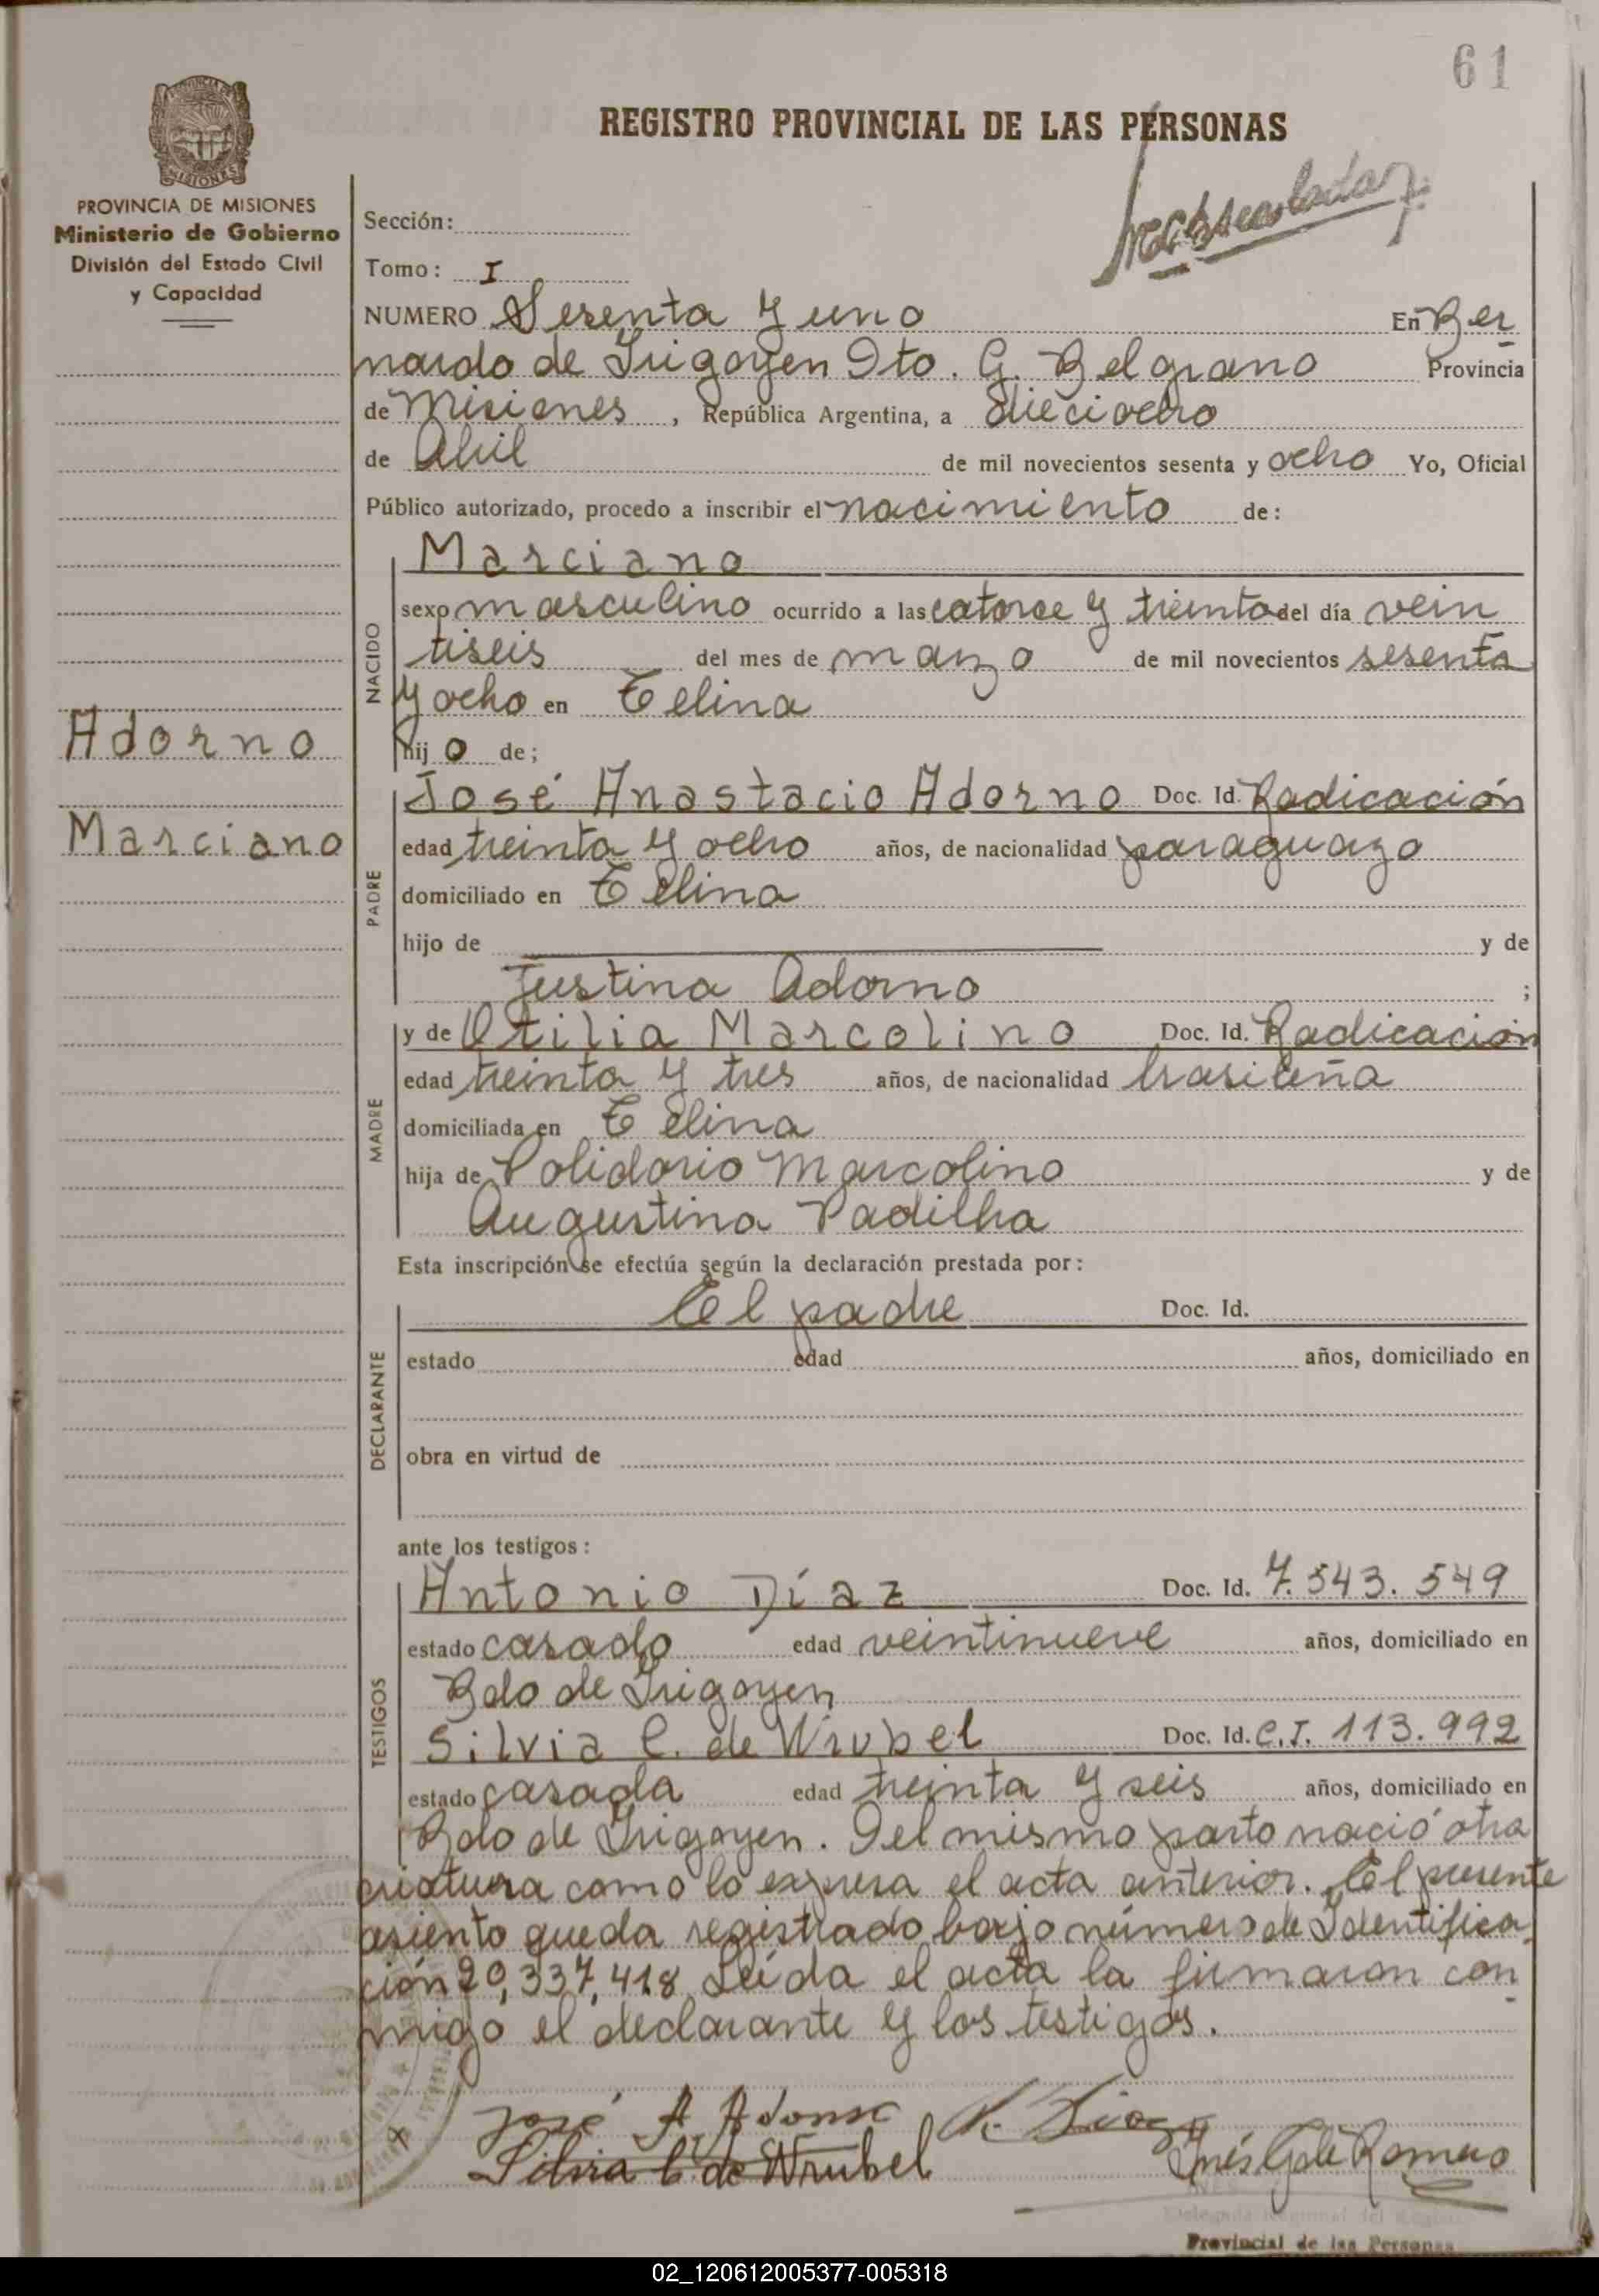 61
REGISTRO PROVINCIAL DE LAS PERSONAS
MISIONES
PROVINCIA DE MISIONES
Ministerio de Gobierno
División del Estado Civil
y Capacidad
Sección:
Tomo: I
NUMERO Sesenta y uno En Ber
nardo de Irigoyen Dto. G. Belgrano Provincia
de Misiones, República Argentina, a dieciocho
de Abril de mil novecientos sesenta y ocho Yo, Oficial
Público autorizado, procedo a inscribir el nacimiento de:
Marciano
NACIDO
sexo masculino ocurrido a las catorce y treinta del día vein
tiseis del mes de marzo de mil novecientos sesenta
y ocho en Celina
Adorno
hijo de;
José Anastacio Adorno Doc. Id. Radicación
Marciano
PADRE
edad treinta y ocho años, de nacionalidad paraguayo
domiciliado en Celina
hijo de y de
Justina Adorno ;
MADRE
y de Otilia Marcolino Doc. Id. Radicación
edad treinta y tres años, de nacionalidad brasileña
domiciliada en Celina
hija de Polidorio Marcolino y de
Augustina Padilha
Esta inscripción se efectúa según la declaración prestada por:
DECLARANTE
El padre Doc. Id.
estado edad años, domiciliado en
obra en virtud de
ante los testigos:
TESTIGOS
Antonio Díaz Doc. Id. 7.543.549
estado casado edad veintinueve años, domiciliado en
Bdo de Irigoyen
Silvia C. de Wrubel Doc. Id. C.I. 113.992
estado casada edad treinta y seis años, domiciliado en
Bdo de Irigoyen. Del mismo parto nació otra
criatura como lo expresa el acta anterior. El presente
asiento queda registrado bajo número de Identifica
ción 20,337,418 Leída el acta la firmaron con
migo el declarante y los testigos.
José A. Adorno A. Diaz
Silvia C. de Wrubel Inés G. de Romero
Provincial de las Personas
02_120612005377-005318